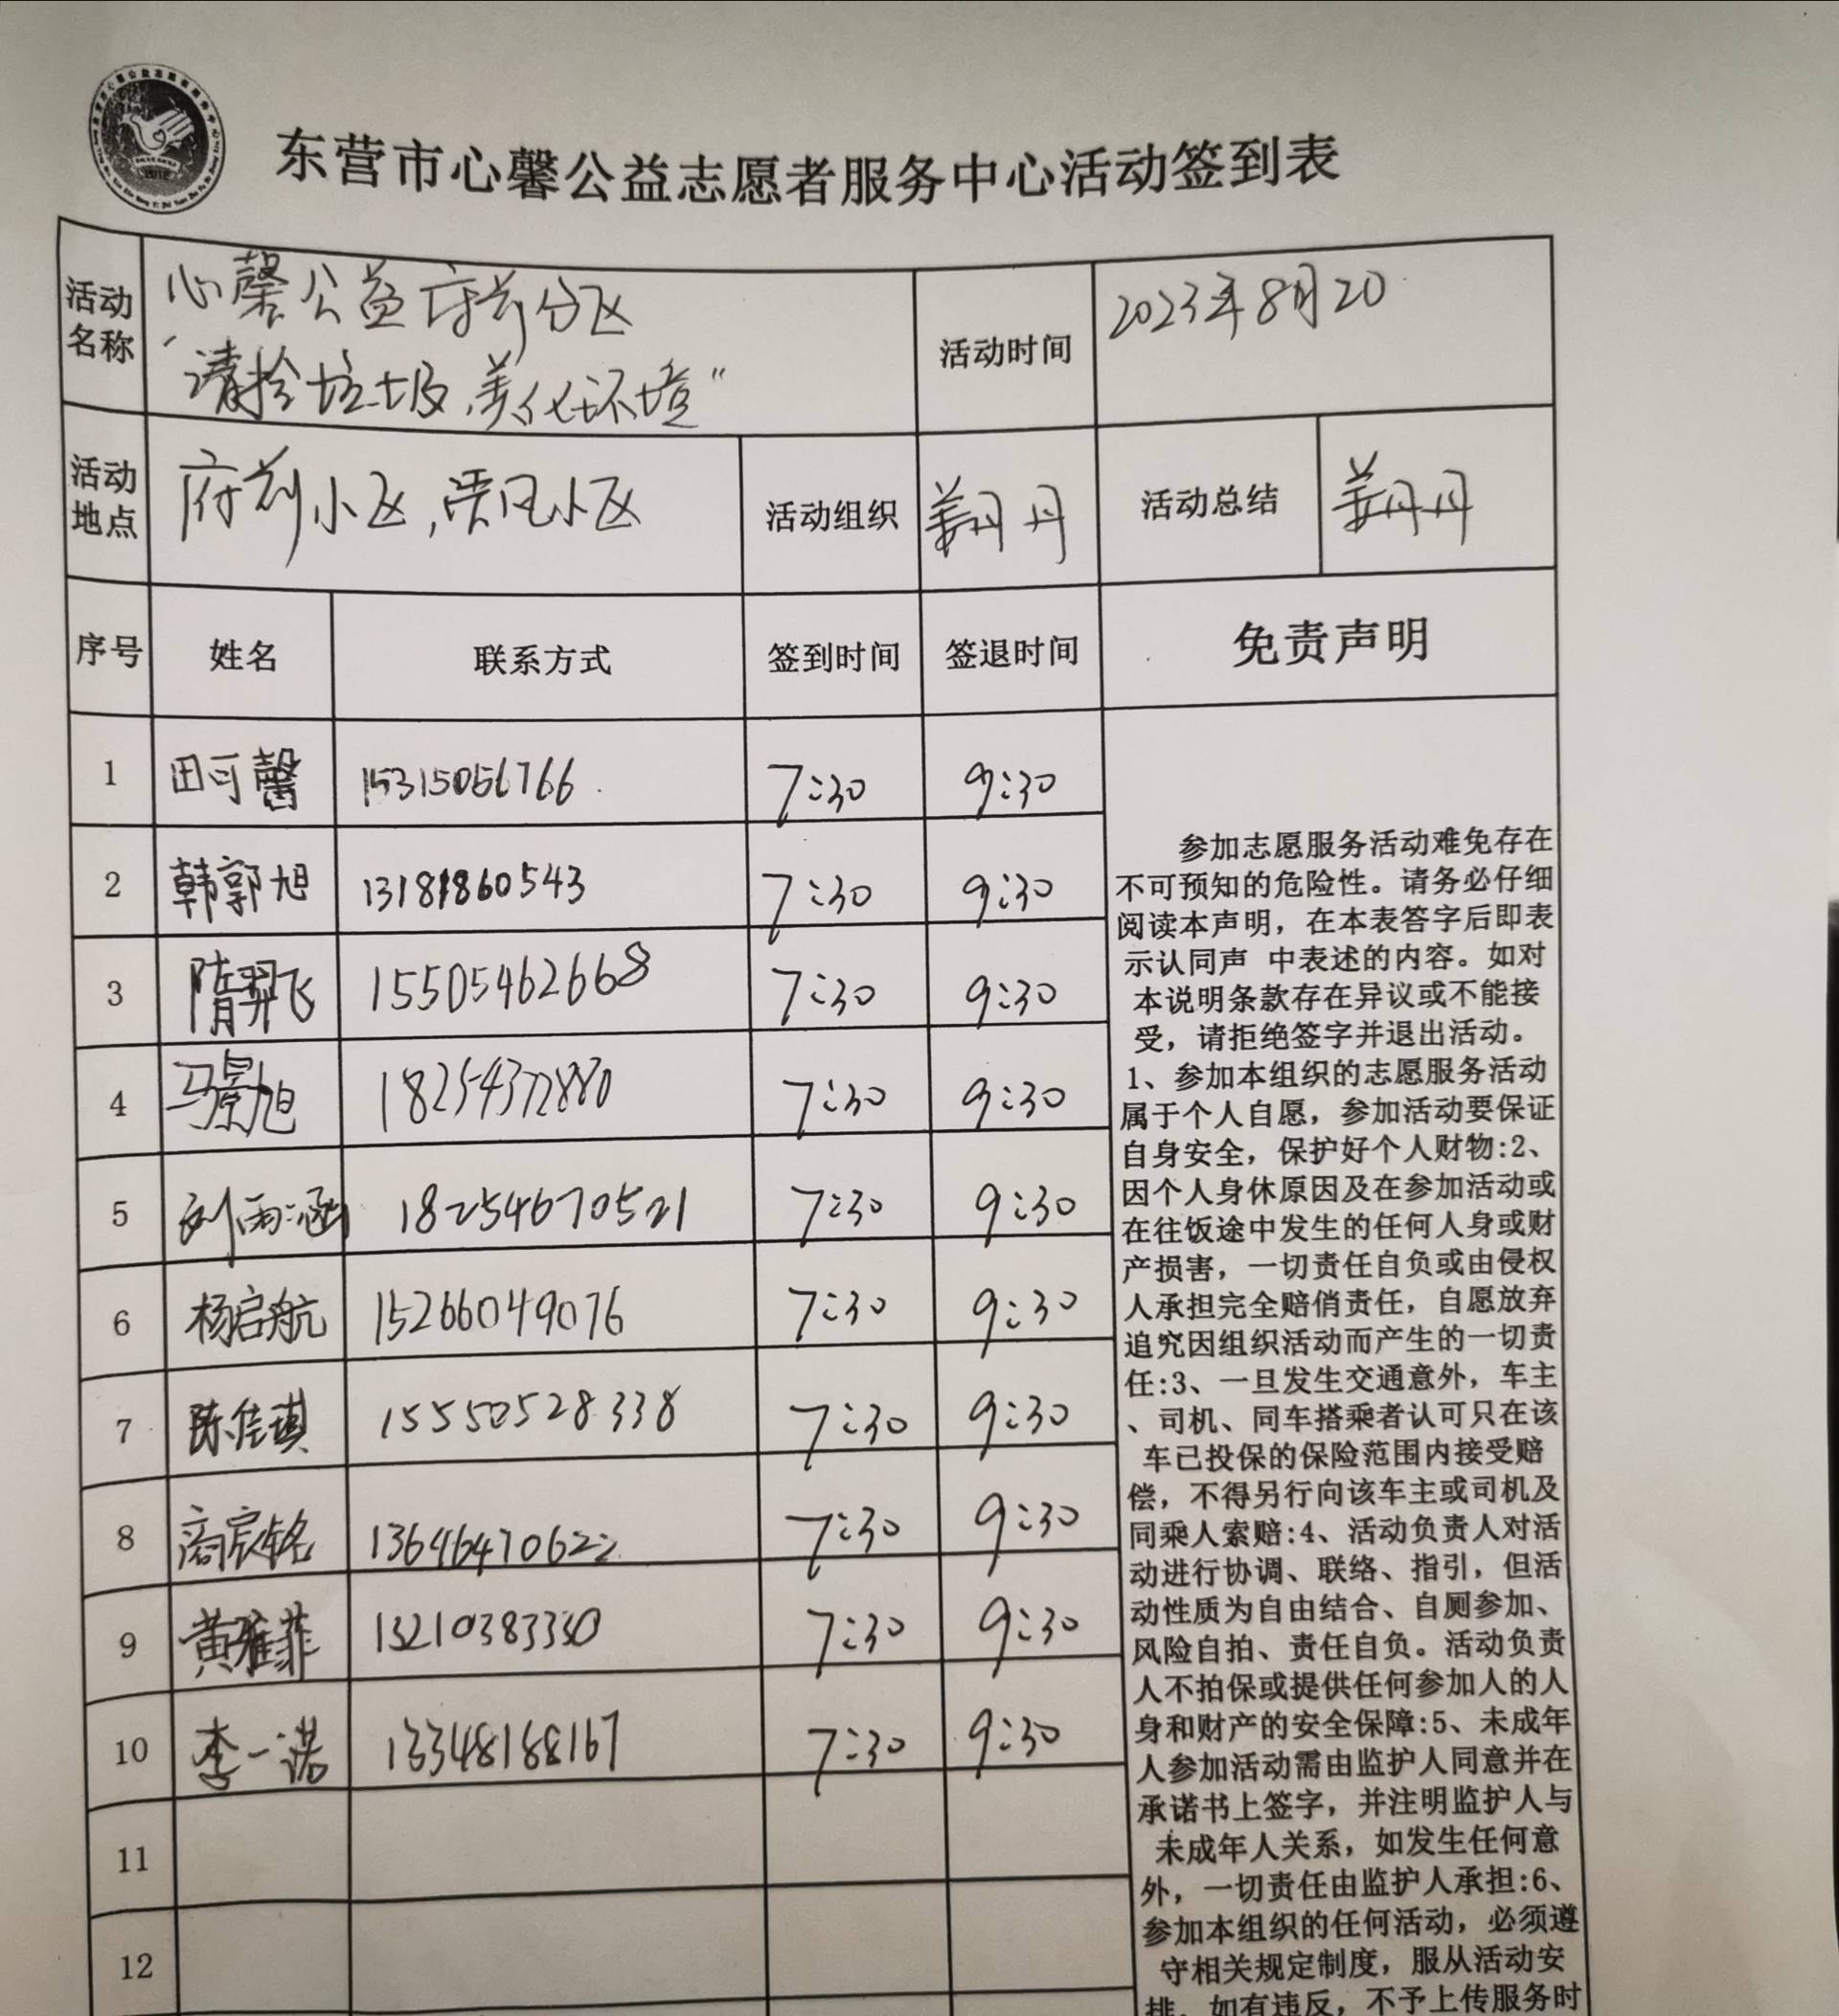 东营市心馨公益志愿者服务中心活动签到表
活动名称
心馨公益府前分区
“清拾垃圾,美化环境”
活动时间
2023年8月20
活动地点
府前小区,
小区
活动组织
姜丹丹
活动总结
姜丹丹
序号 姓名 联系方式 签到时间 签退时间 免责声明
1 田可馨 15315056766 7:30 9:30
2 韩郭旭 13181860543 7:30 9:30
3 隋羿飞 15505462668 7:30 9:30
4 马景旭 18254372880 7:30 9:30
5 刘雨涵 18254670521 7:30 9:30
6 杨启航 15266049076 7:30 9:30
7 陈佳琪 15550528338 7:30 9:30
8 商宸铭 13646470622 7:30 9:30
9 黄雅菲 13210383330 7:30 9:30
10 李一诺 13348168167 7:30 9:30
11
12
参加志愿服务活动难免存在
不可预知的危险性。请务必仔细
阅读本声明,在本表答字后即表
示认同声 中表述的内容。如对
本说明条款存在异议或不能接
受,请拒绝签字并退出活动。
1、参加本组织的志愿服务活动
属于个人自愿,参加活动要保证
自身安全,保护好个人财物:2、
因个人身休原因及在参加活动或
在往饭途中发生的任何人身或财
产损害,一切责任自负或由侵权
人承担完全赔俏责任,自愿放弃
追究因组织活动而产生的一切责
任:3、一旦发生交通意外,车主
、司机、同车搭乘者认可只在该
车已投保的保险范围内接受赔
偿,不得另行向该车主或司机及
同乘人索赔:4、活动负责人对活
动进行协调、联络、指引,但活
动性质为自由结合、自厕参加、
风险自拍、责任自负。活动负责
人不拍保或提供任何参加人的人
身和财产的安全保障:5、未成年
人参加活动需由监护人同意并在
承诺书上签字,并注明监护人与
未成年人关系,如发生任何意
外,一切责任由监护人承担:6、
参加本组织的任何活动,必须遵
守相关规定制度,服从活动安
排,如有违反,不予上传服务时